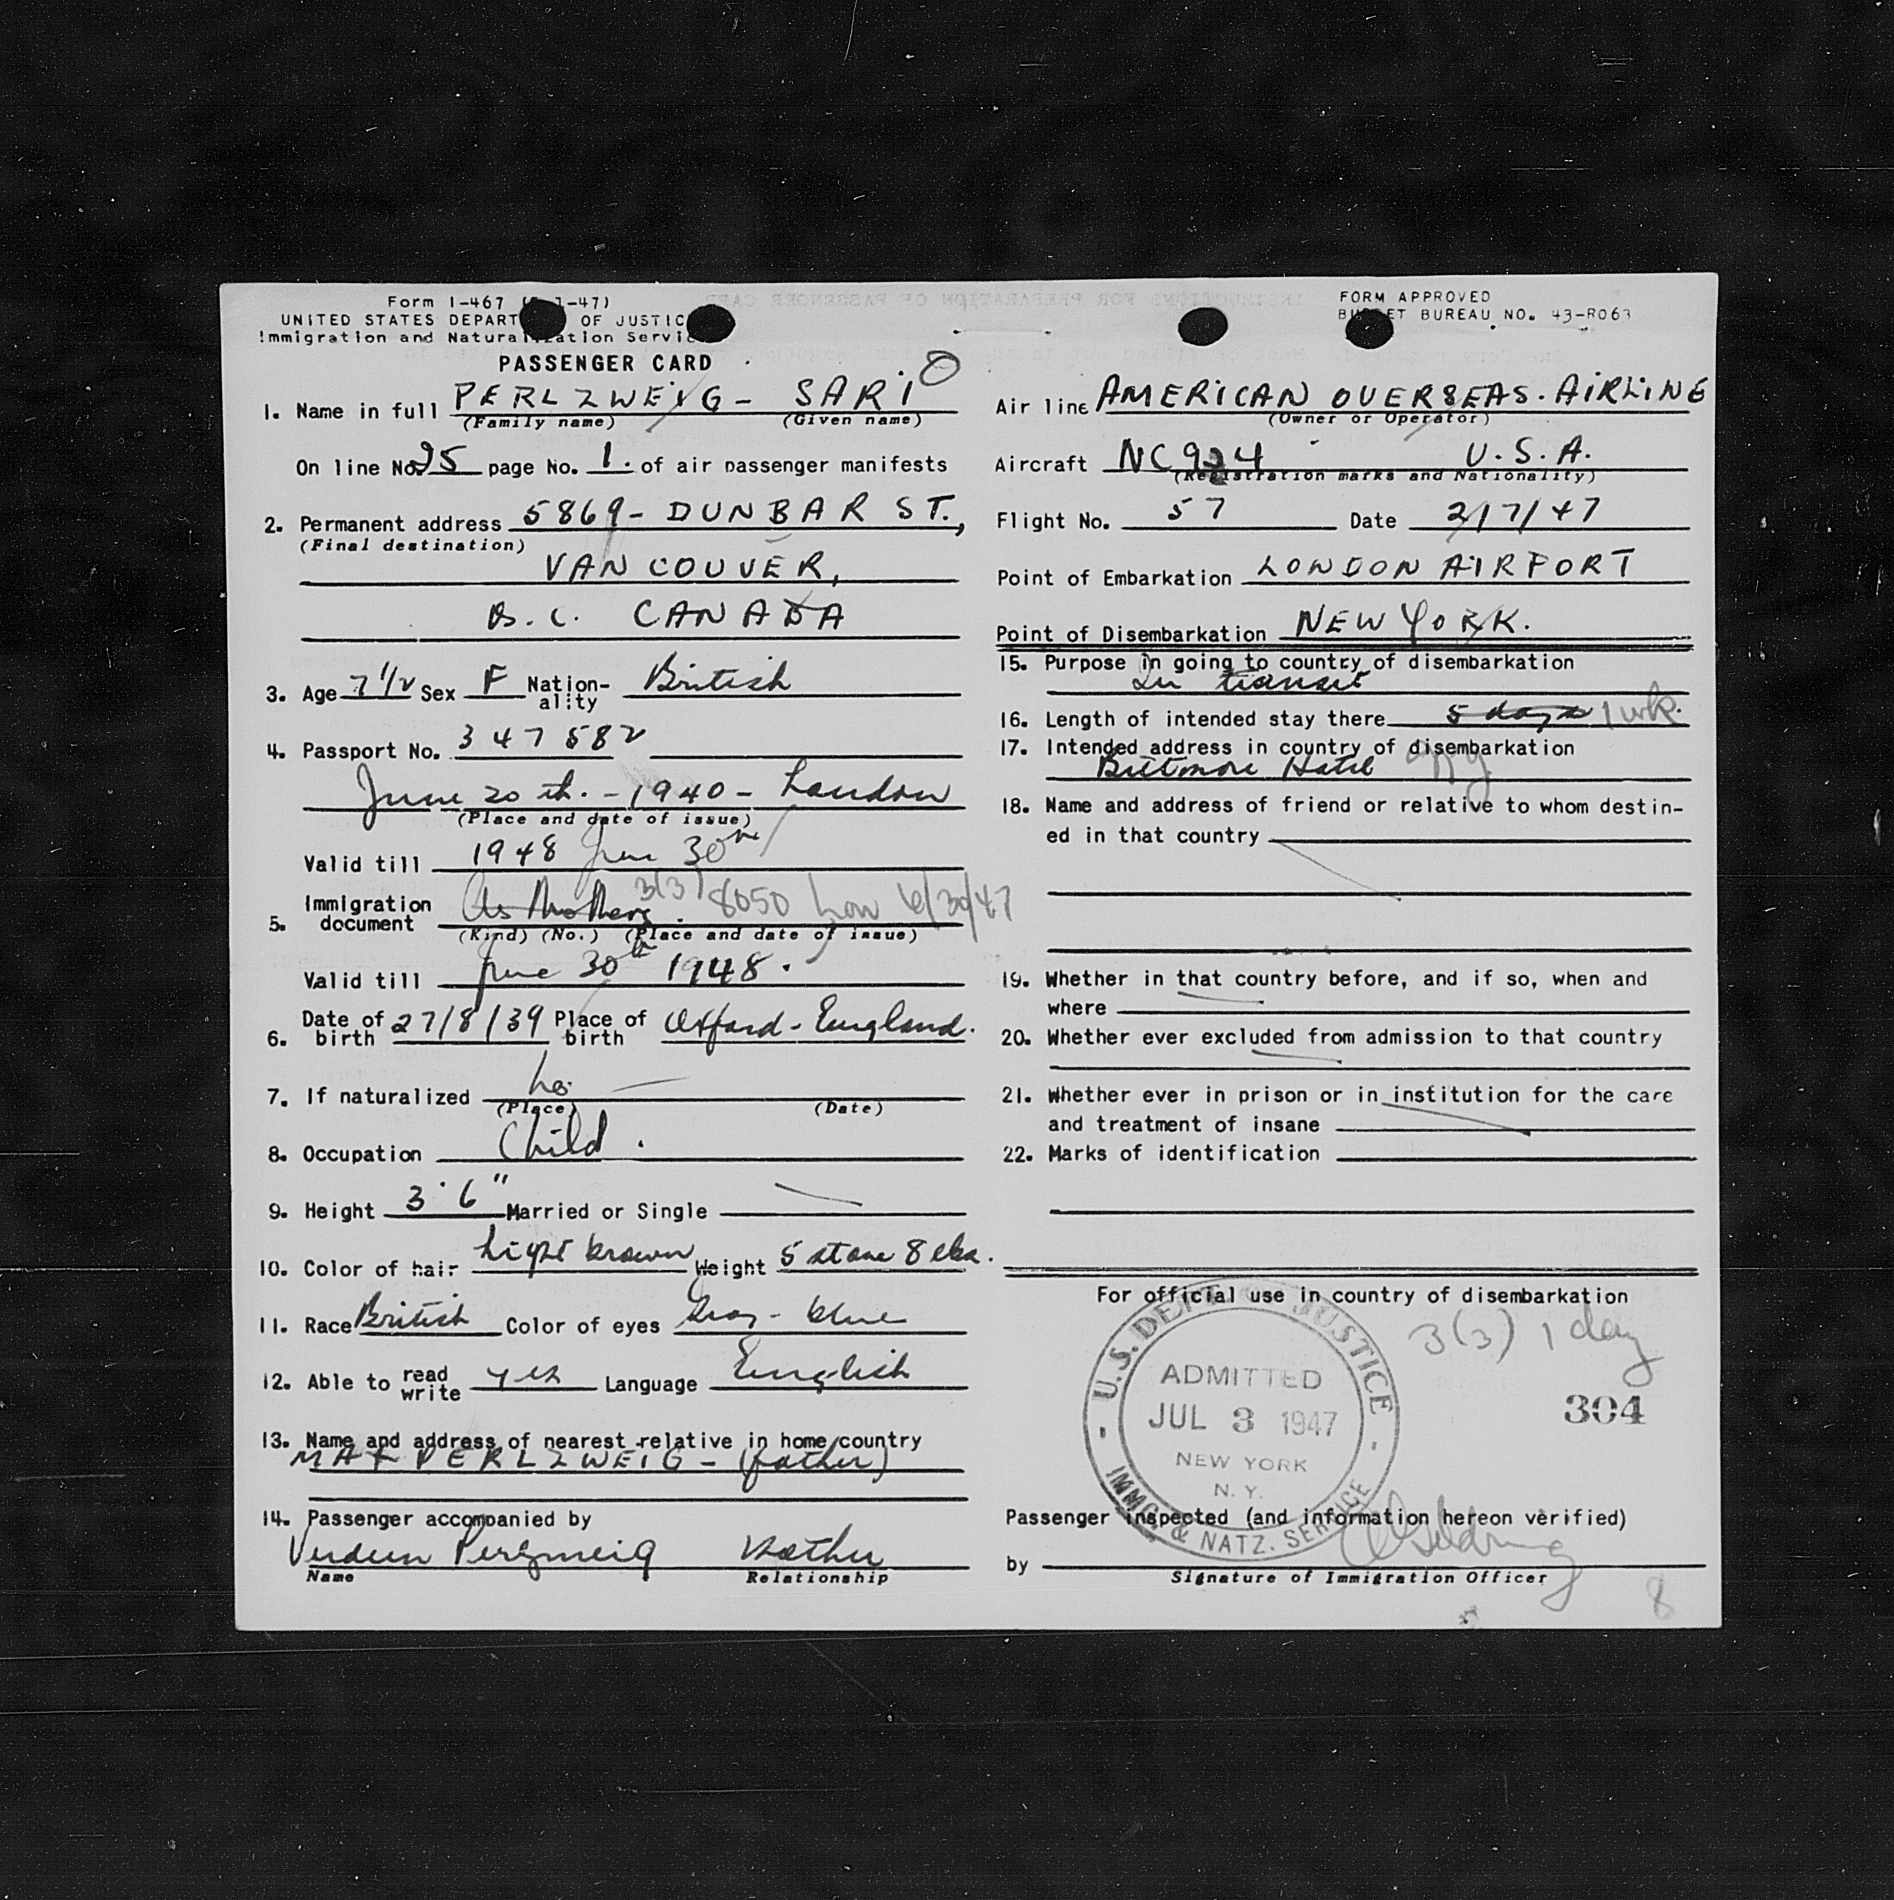 Form I-467 ( -1-47)
UNITED STATES DEPART OF JUSTIC
Immigration and Naturalization Servic
PASSENGER CARD
FORM APPROVED
BU ET BUREAU NO. 43-R063
1. Name in full PERLZWEIG - SARI
(Family name) (Given name)
On line No. 25 page No. 1. of air passenger manifests
2. Permanent address 5869 - DUNBAR ST.,
(Final destination)
VANCOUVER,
B.C. CANADA
3. Age 7 1/2 Sex F Nation-ality British
4. Passport No. 347582
June 20th. - 1940 - London
(Place and date of issue)
Valid till 1948 June 30th
5. Immigration document As Mothers. 3(3) 8050 Lon 6/30/47
(Kind) (No.) (Place and date of issue)
Valid till June 30th 1948.
6. Date of birth 27/8/39 Place of birth Oxford - England.
7. If naturalized no
(Place) (Date)
8. Occupation Child.
9. Height 3' 6" Married or Single
10. Color of hair light brown Weight 5 stone 8 lbs.
11. Race British Color of eyes Gray - blue
12. Able to read write yes Language English
13. Name and address of nearest relative in home country
MAX PERLZWEIG - (father)
14. Passenger accompanied by
Perlzweig Mother
Name Relationship
Air line AMERICAN OVERSEAS. AIRLINE
(Owner or Operator)
Aircraft NC924 U.S.A.
(Registration marks and Nationality)
Flight No. 57 Date 2/7/47
Point of Embarkation LONDON AIRPORT
Point of Disembarkation NEW YORK.
15. Purpose in going to country of disembarkation
In transit
16. Length of intended stay there 5 days 1 wk.
17. Intended address in country of disembarkation
Biltmore Hotel NY
18. Name and address of friend or relative to whom destin-
ed in that country
19. Whether in that country before, and if so, when and
where
20. Whether ever excluded from admission to that country
21. Whether ever in prison or in institution for the care
and treatment of insane
22. Marks of identification
For official use in country of disembarkation
3(3) 1 day
304
U.S. DEPT. OF JUSTICE
ADMITTED
JUL 3 1947
NEW YORK
N.Y.
IMMG. & NATZ. SERVICE
Passenger inspected (and information hereon verified)
by
Signature of Immigration Officer
8